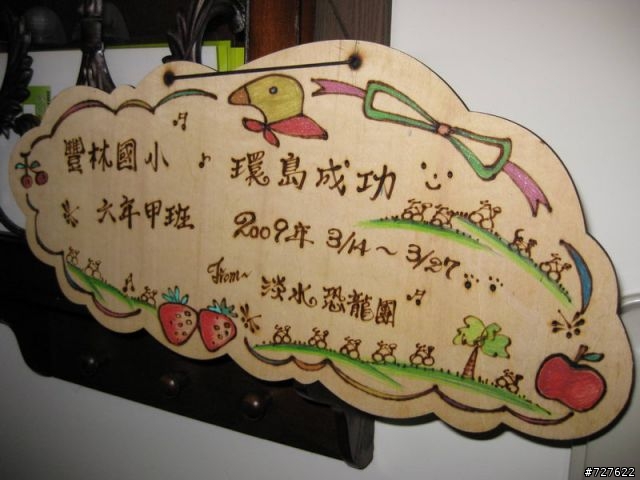 豐林國小
環島成功
六年甲班
2009年 3/14～3/27
From~
淡水恐龍團
#727622